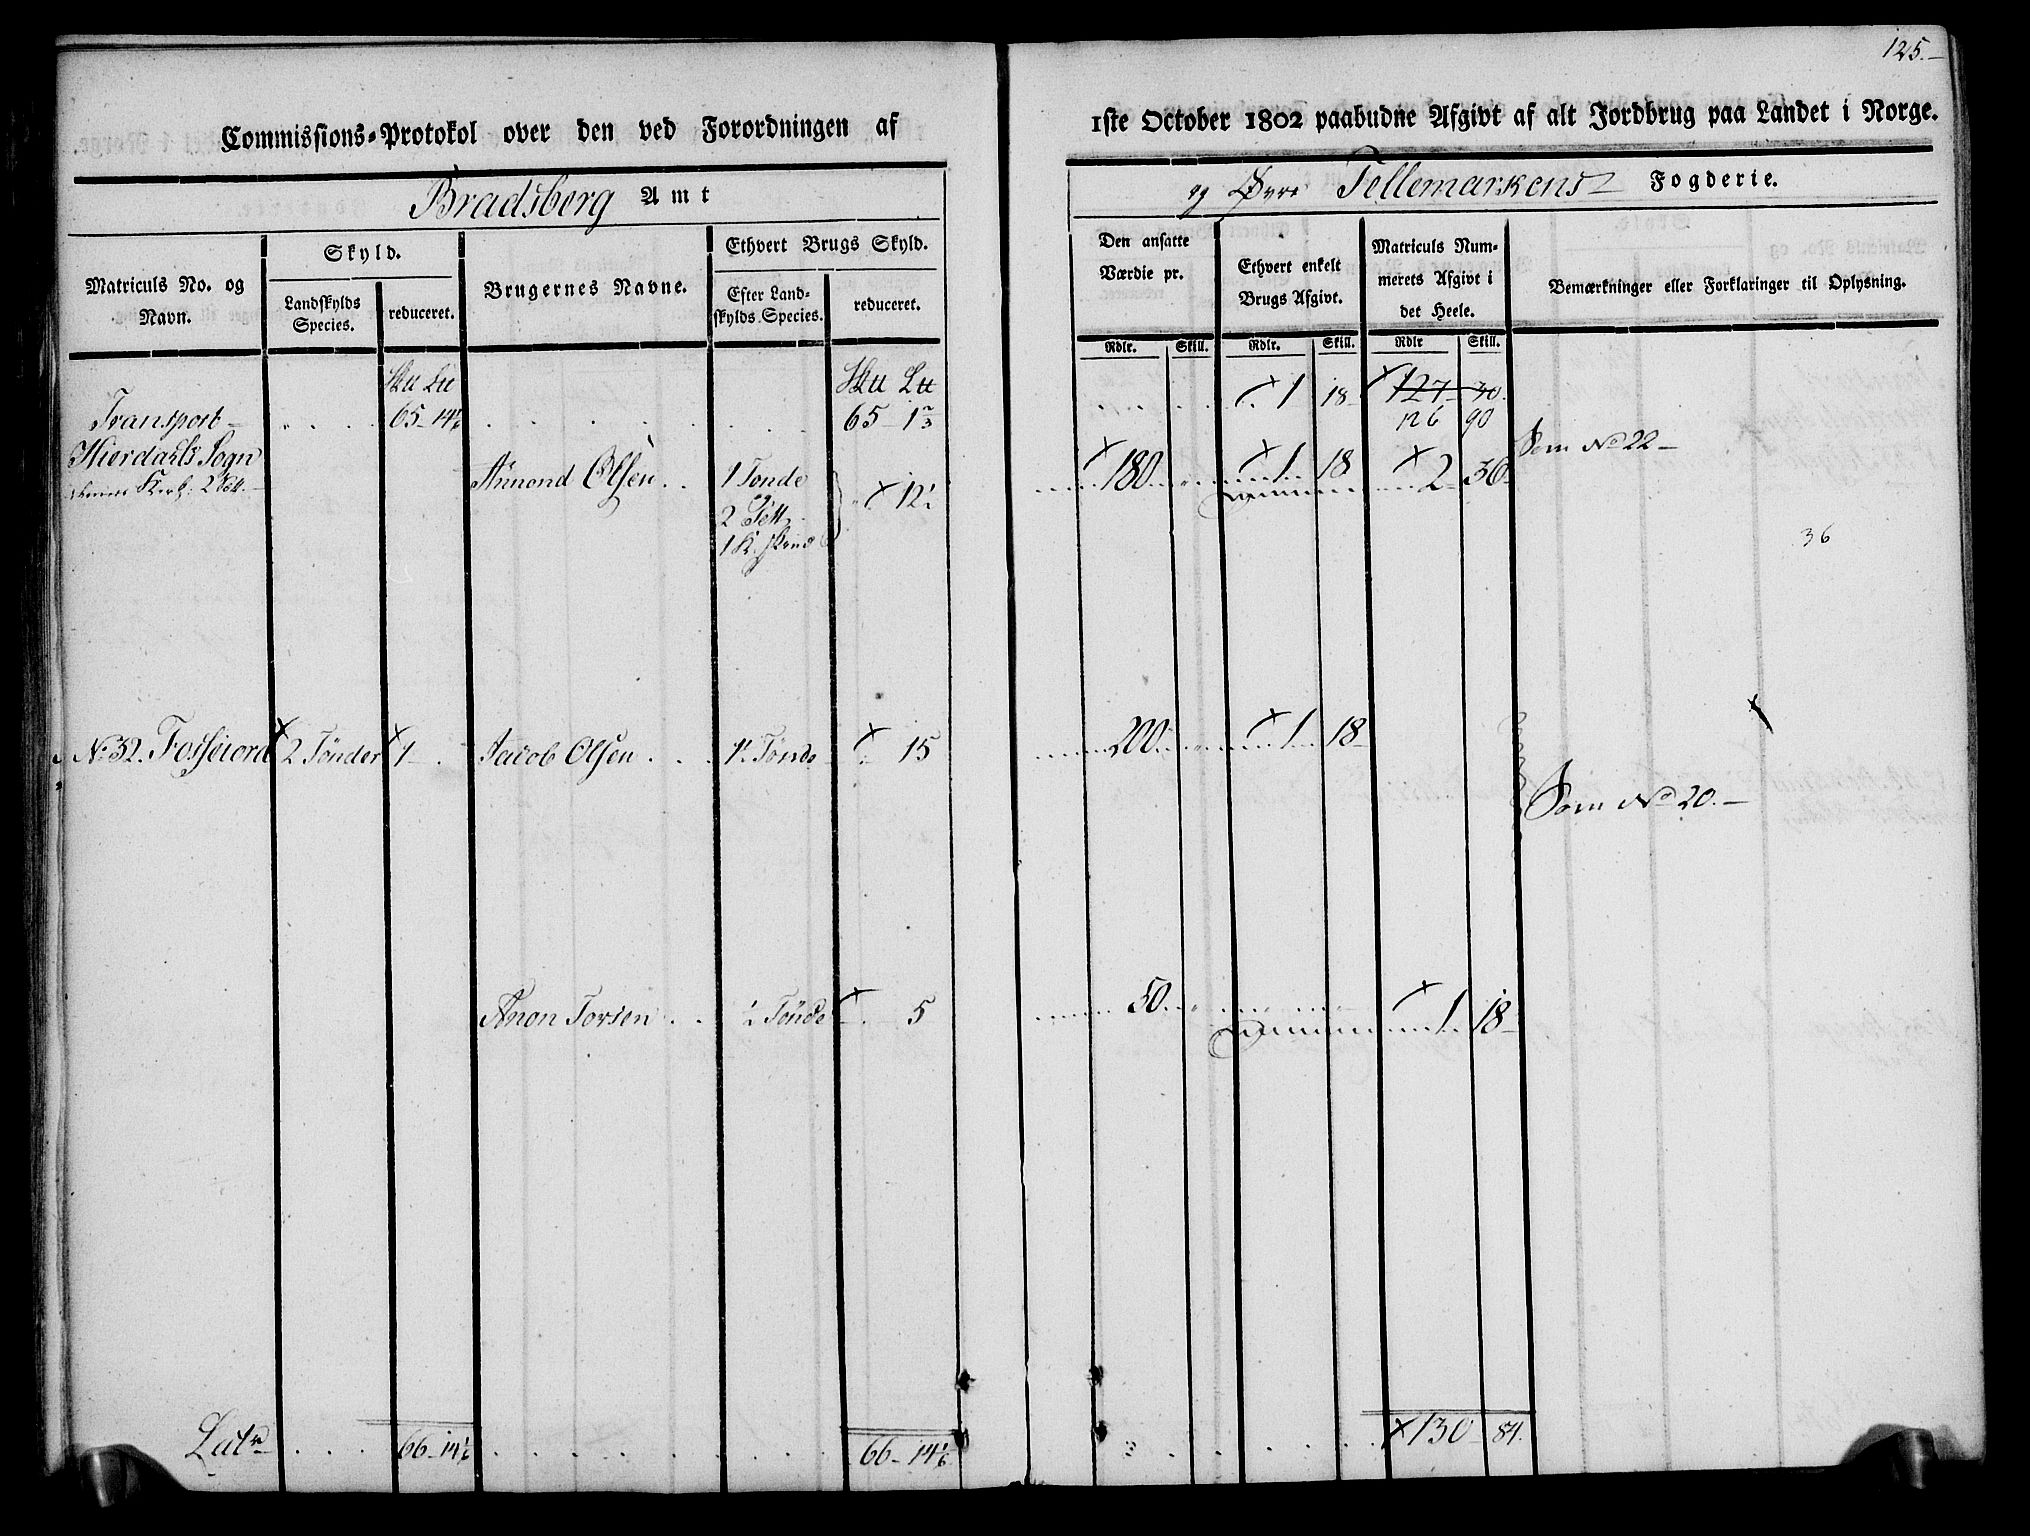 125.
Commissions-Protokol over den ved Forordningen af
1ste October 1802 paabudne Afgivt af alt Jordbrug paa Landet i Norge.
Bradsberg Amt
og Øvre Tellemarkens Fogderie.
Matriculs No. og Navn.
Skyld.
Landskylds Species.
reduceret.
Brugernes Navne.
Ethvert Brugs Skyld.
Efter Landskylds Species.
reduceret.
Den ansatte Værdie pr.
Ethvert enkelt Brugs Afgivt.
Matriculs Nummerets Afgivt i det Heele.
Bemærkninger eller Forklaringer til Oplysning.
Rdlr. Skill. Rdlr. Skill. Rdlr Skill.
1 18 127 30
Transport 65 126 90
Hierdahls Sogn
Aamond Olsen 1 Tonde 12½ 180 1 18 2 36 Som No 22
og
2 Sett
36
No 32. Fosseiord 2 Tönder 1 Jacob Olsen 1½ Tönde 15 200 1 18
Som No 20.
Anon Torsen ½ Tönde 5 50 1 18
Lat 66 14⅙ 66 14⅙ 130 84.